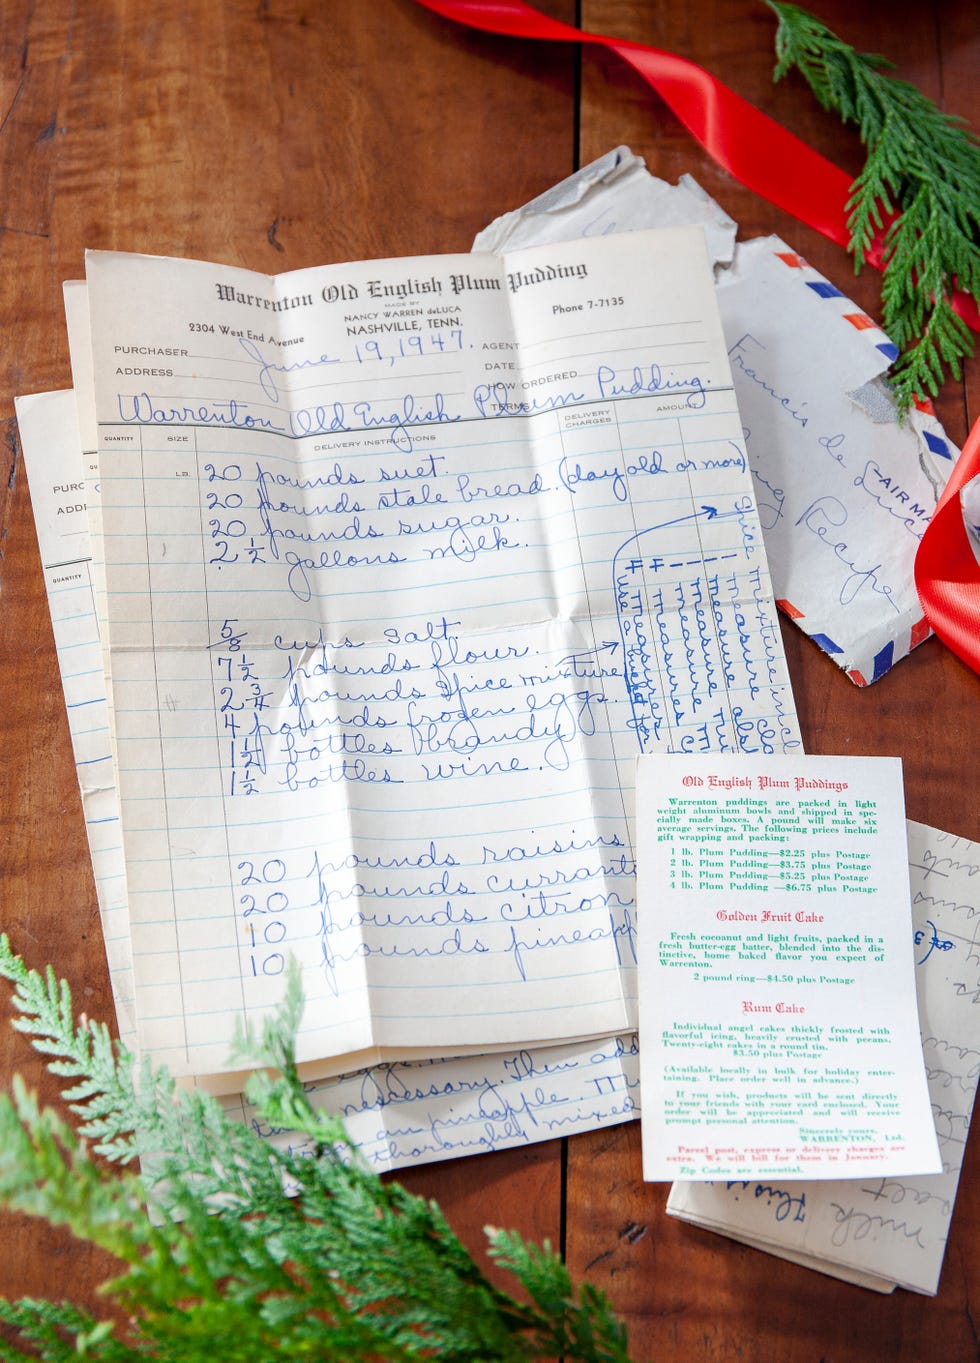 Warrenton Old English Plum Pudding
MADE BY
NANCY WARREN deLUCA
2304 West End Avenue
NASHVILLE, TENN.
Phone 7-7135
PURCHASER
June 19, 1947.
AGENT
ADDRESS
DATE
HOW ORDERED
TERMS
Warrenton Old English Plum Pudding.
QUANTITY SIZE DELIVERY INSTRUCTIONS DELIVERY CHARGES AMOUNT
LB.
20 pounds suet.
20 pounds stale bread. (day old or more)
20 pounds sugar.
2 1/2 gallons milk.
5/8 cups salt.
7 1/2 pounds flour.
2 3/4 pounds spice mixture
4 pounds frozen eggs.
1 1/2 bottles brandy
1 1/2 bottles wine.
20 pounds raisins
20 pounds currants
10 pounds citron
10 pounds pineapp
Spice mixture
1 measure
1 measure
1 measure
4 measures
4 measures
use a
PURC
ADDI
QUANTITY
Francis de Luca
Recipe
AIR MA
necessary. Then add
pineapple.
thoroughly mixed
Old English Plum Puddings
Warrenton puddings are packed in light
weight aluminum bowls and shipped in spe-
cially made boxes. A pound will make six
average servings. The following prices include
gift wrapping and packing:
1 lb. Plum Pudding—$2.25 plus Postage
2 lb. Plum Pudding—$3.75 plus Postage
3 lb. Plum Pudding—$5.25 plus Postage
4 lb. Plum Pudding —$6.75 plus Postage
Golden Fruit Cake
Fresh cocoanut and light fruits, packed in a
fresh butter-egg batter, blended into the dis-
tinctive, home baked flavor you expect of
Warrenton.
2 pound ring—$4.50 plus Postage
Rum Cake
Individual angel cakes thickly frosted with
flavorful icing, heavily crusted with pecans.
Twenty-eight cakes in a round tin.
$3.50 plus Postage
(Available locally in bulk for holiday enter-
taining. Place order well in advance.)
If you wish, products will be sent directly
to your friends with your card enclosed. Your
order will be appreciated and will receive
prompt personal attention.
Sincerely yours,
WARRENTON, Ltd.
Parcel post, express or delivery charges are
extra. We will bill for them in January.
Zip Codes are essential.
milk
salt